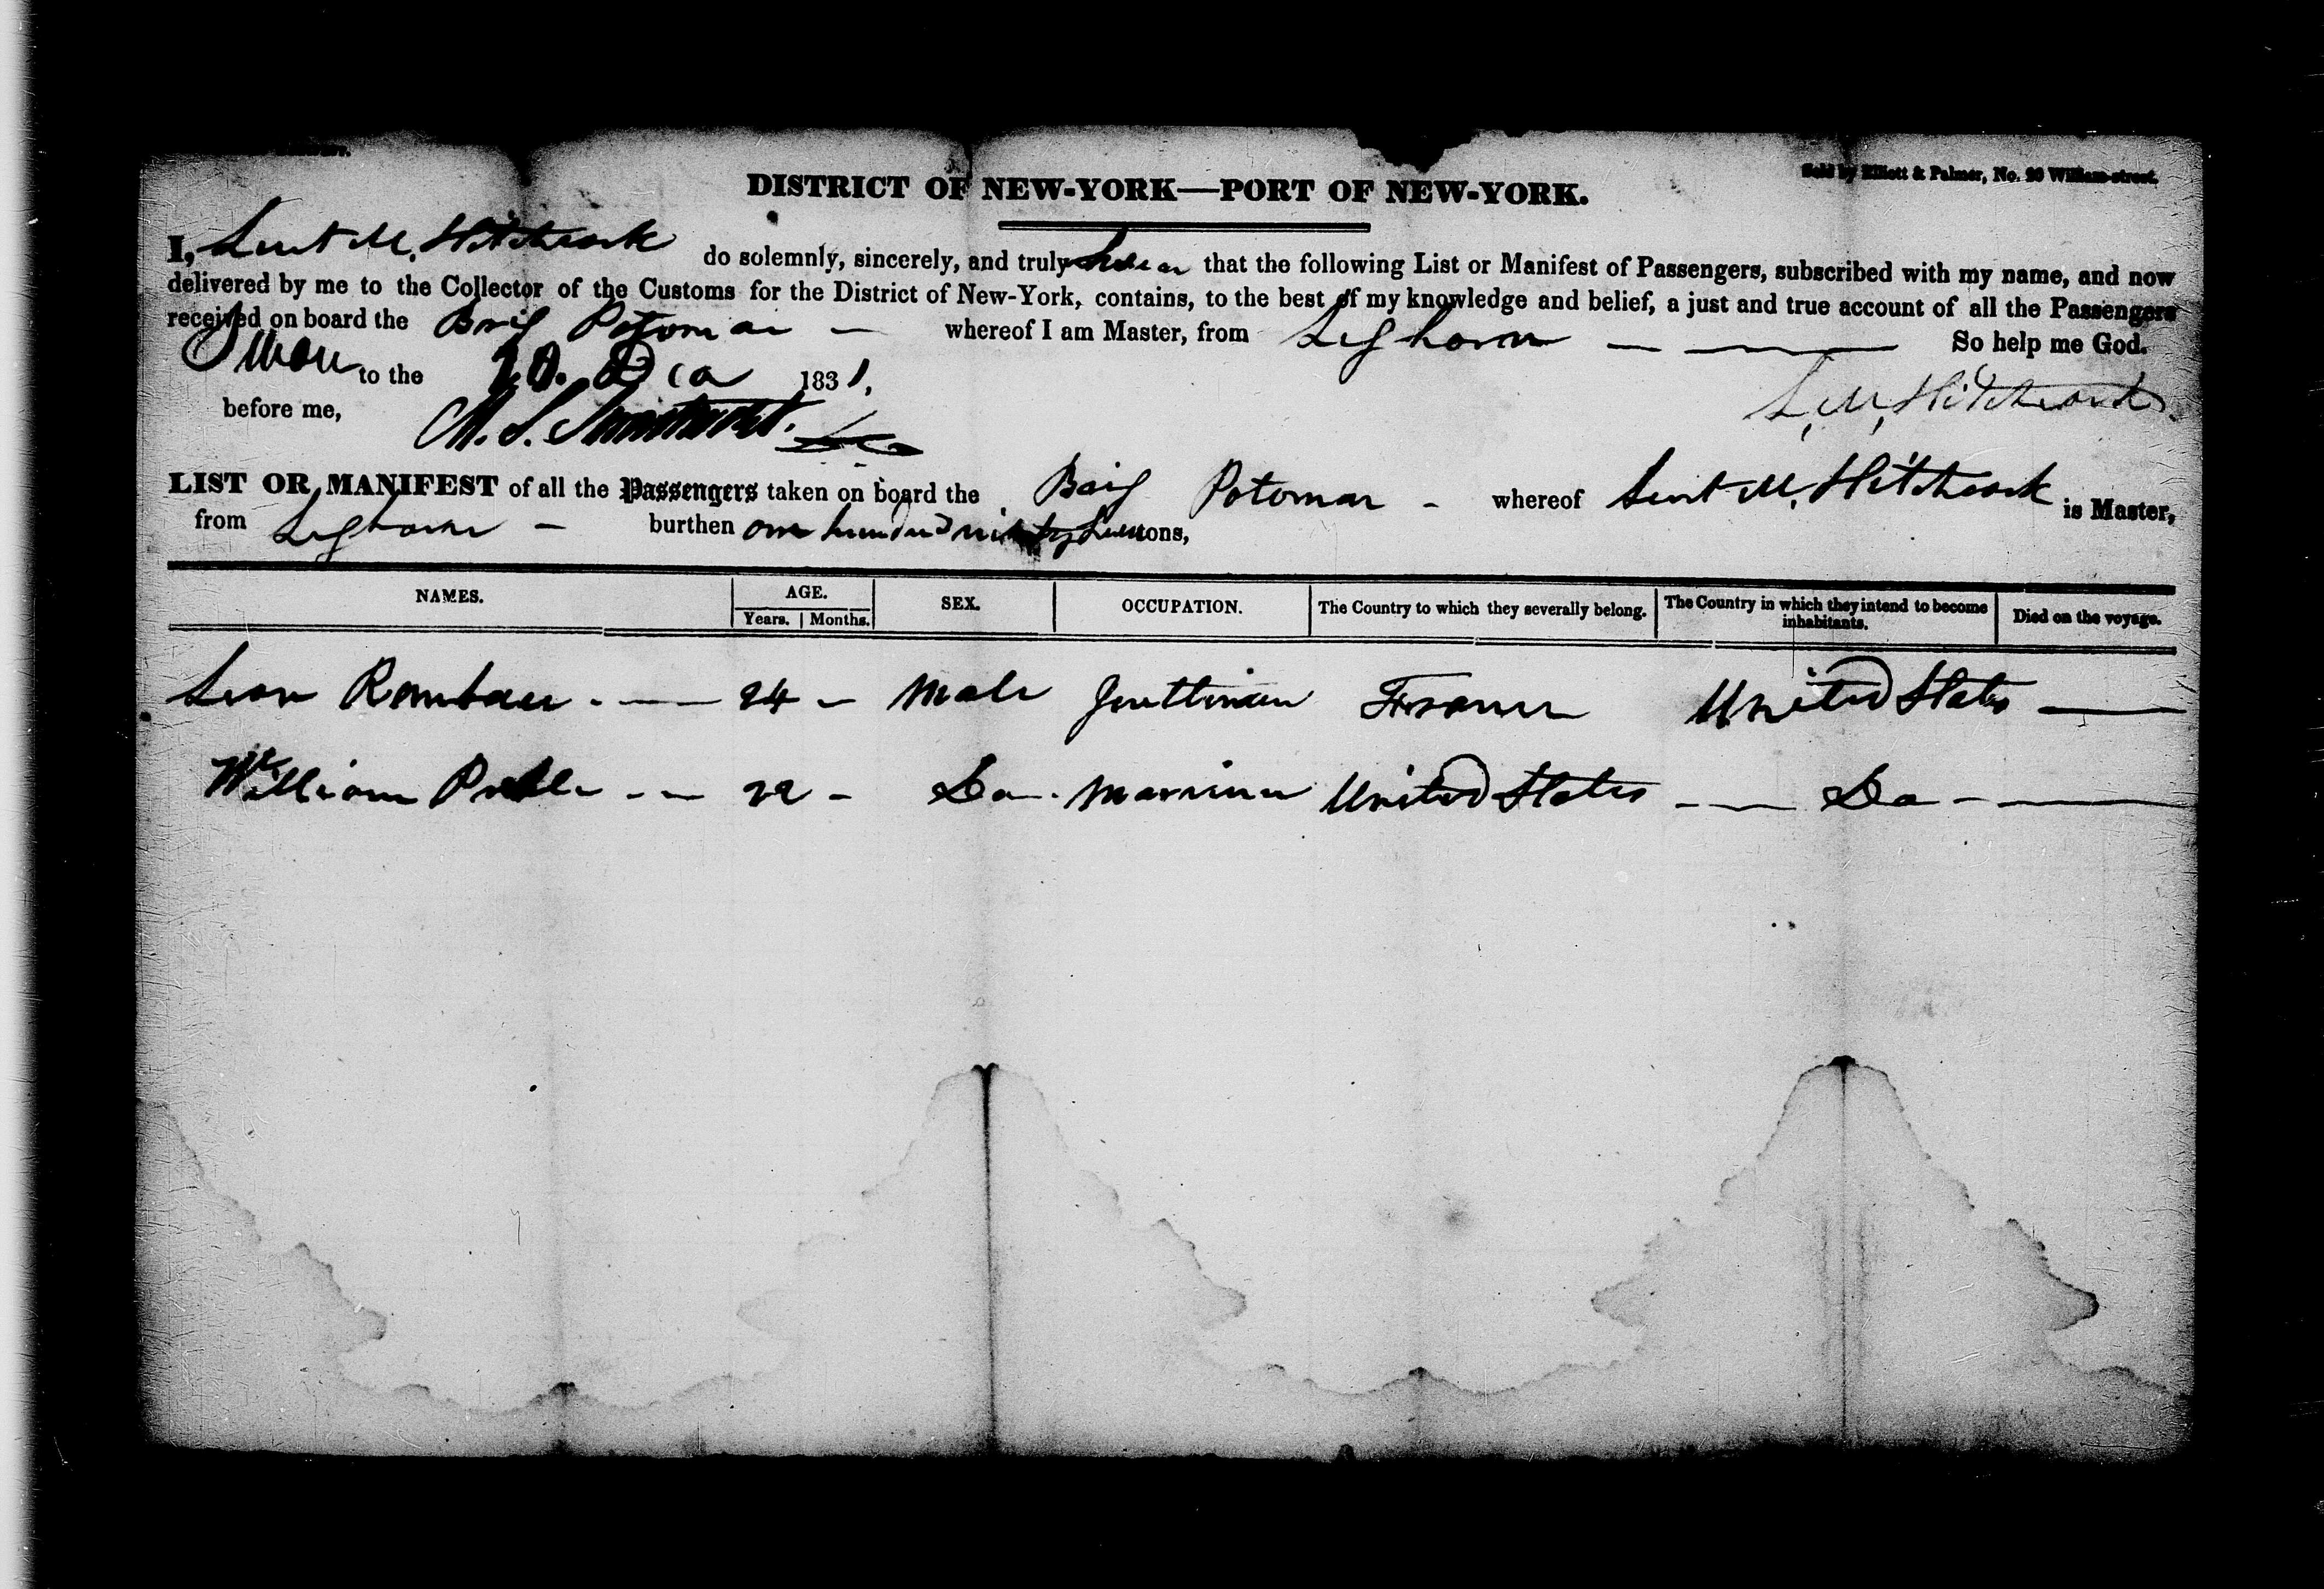 Sold by Elliott & Palmer, No. 20 William-street.
DISTRICT OF NEW-YORK—PORT OF NEW-YORK.
I, M. Hitchcock do solemnly, sincerely, and truly swear that the following List or Manifest of Passengers, subscribed with my name, and now
delivered by me to the Collector of the Customs for the District of New-York, contains, to the best of my knowledge and belief, a just and true account of all the Passengers
received on board the Brig Potomac — whereof I am Master, from Leghorn — — So help me God.
Sworn to the 20. Dec 1831,
before me,
L. M. Hitchcock.
LIST OR MANIFEST of all the Passengers taken on board the Brig Potomac - whereof M. Hitchcock is Master,
from Leghorn — burthen one hundred ninety tons,
NAMES. AGE. SEX. OCCUPATION. The Country to which they severally belong. The Country in which they intend to become inhabitants. Died on the voyage.
Years. Months.
Leon 24 - Male Gentleman France United States —
William 22 - Do. Marriner United States — Do - —